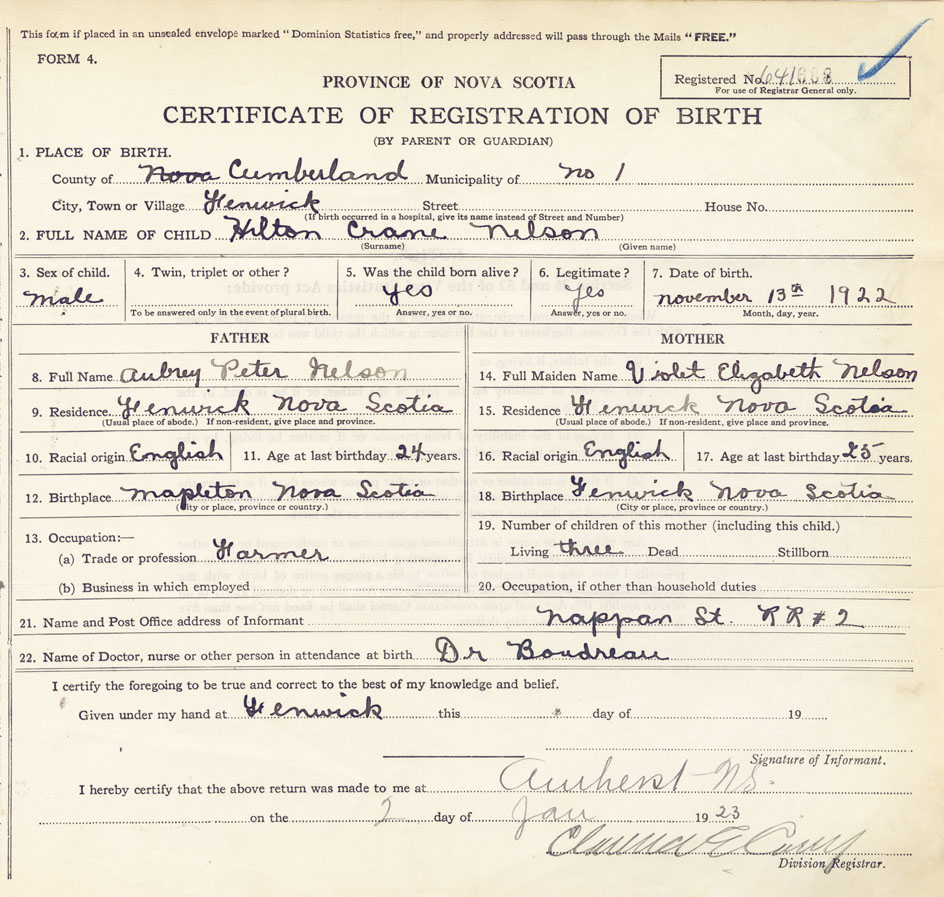 This form if placed in an unsealed envelope marked "Dominion Statistics free," and properly addressed will pass through the Mails "FREE."
FORM 4.
Registered No. 641808
For use of Registrar General only.
PROVINCE OF NOVA SCOTIA
CERTIFICATE OF REGISTRATION OF BIRTH
(BY PARENT OR GUARDIAN)
1. PLACE OF BIRTH.
County of Nova Cumberland Municipality of no 1
City, Town or Village Fenwick Street House No.
(If birth occurred in a hospital, give its name instead of Street and Number)
2. FULL NAME OF CHILD Hilton Crane Nelson
(Surname) (Given name)
3. Sex of child. 4. Twin, triplet or other? 5. Was the child born alive? 6. Legitimate? 7. Date of birth.
male yes yes november 13th 1922
To be answered only in the event of plural birth. Answer, yes or no. Answer, yes or no. Month, day, year.
FATHER MOTHER
8. Full Name Aubrey Peter Nelson 14. Full Maiden Name Violet Elizabeth Nelson
9. Residence Fenwick Nova Scotia 15. Residence Fenwick Nova Scotia
(Usual place of abode.) If non-resident, give place and province. (Usual place of abode.) If non-resident, give place and province.
10. Racial origin English 11. Age at last birthday 24 years. 16. Racial origin English 17. Age at last birthday 25 years.
12. Birthplace mapleton Nova Scotia 18. Birthplace Fenwick Nova Scotia
(City or place, province or country.) (City or place, province or country.)
13. Occupation:— 19. Number of children of this mother (including this child.)
(a) Trade or profession Farmer Living three Dead Stillborn
(b) Business in which employed 20. Occupation, if other than household duties
21. Name and Post Office address of Informant nappan St. RR # 2
22. Name of Doctor, nurse or other person in attendance at birth Dr Boudreau
I certify the foregoing to be true and correct to the best of my knowledge and belief.
Given under my hand at Fenwick this day of 19
Signature of Informant.
I hereby certify that the above return was made to me at Amherst NS.
on the 2 day of Jan 1923
Division Registrar.